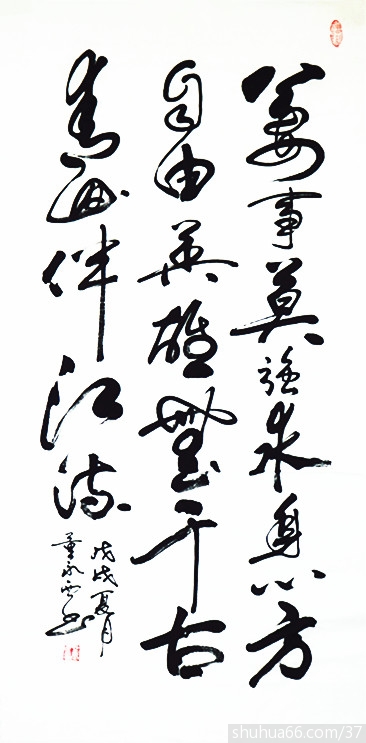 萬事莫強求身心方
自由英雄無千古
青山伴江流
戊戌夏月
董 书
shuhua66.com/37